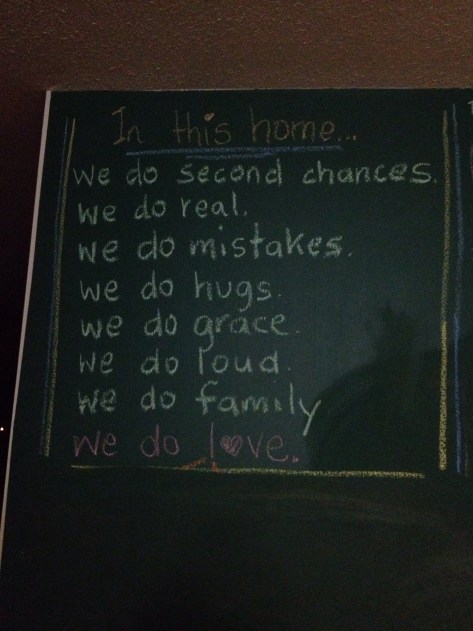 In this home...
we do second chances.
we do real.
we do mistakes.
we do hugs.
we do grace.
we do loud.
we do family
we do love.